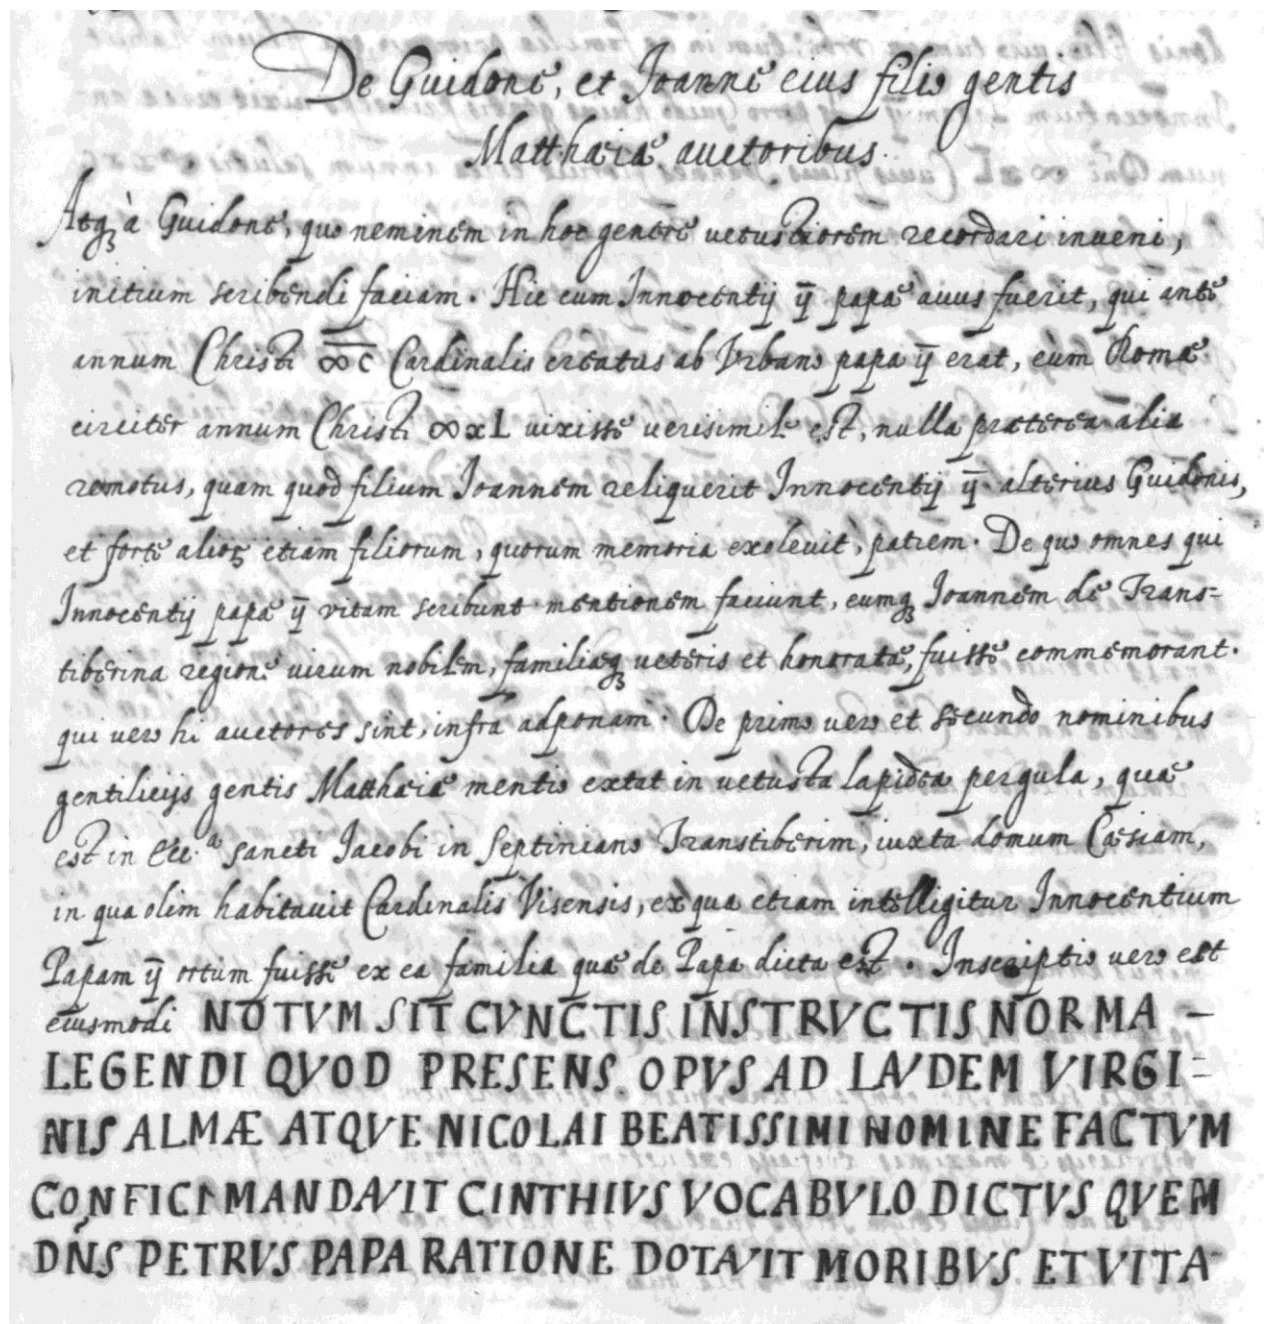 De Guidone, et Joanne eius filio gentis
Matthæiæ auctoribus.
Atq₃ à Guidone, quo neminem in hoc genere uetustiorem recordari inueni,
initium scribendi faciam. Hic cum Innocentij ij̄ papæ auus fuerit, qui ante
annum Christi ꝏ c Cardinalis creatus ab Vrbano papa ij̄ erat, eum Romæ
circiter annum Christi ꝏxL uixisse uerisimile est, nulla præterea alia
re notus, quam quod filium Joannem reliquerit Innocentij ij̄ alterius Guidonis,
et forte alioꝝ etiam filiorum, quorum memoria exoleuit, patrem. De quo omnes qui
Innocentij papæ ij̄ vitam scribunt mentionem faciunt, eumq₃ Joannem de Trans=
tiberina regione uirum nobilem, familiæq₃ ueteris et honoratæ, fuisse commemorant.
qui uero hi auctores sint, infra adponam. De primo uero et secundo nominibus
gentilicijs gentis Matthæiæ mentio extat in uetusta lapidea pergula, quæ
est in Ecc.ᵃ sancti Jacobi in Septiniano Transtiberim, iuxta domum Cæsiam,
in qua olim habitauit Cardinalis Visensis, ex qua etiam intelligitur Innocentium
Papam ij̄ ortum fuisse ex ea familia quæ de Papa dicta est. Inscriptio uero est
eiusmodi NOTVM SIT CVNCTIS INSTRVCTIS NORMA –
LEGENDI QVOD PRESENS OPVS AD LAVDEM VIRGI=
NIS ALMÆ ATQVE NICOLAI BEATISSIMI NOMINE FACTVM
CONFICI MANDAVIT CINTHIVS VOCABVLO DICTVS QVEM
DN̄S PETRVS PAPA RATIONE DOTAVIT MORIBVS ET VITA